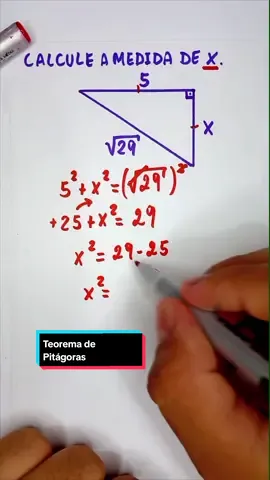 CALCULE A MEDIDA DE X.
5
X
√29
5² + x² = (√29)²
+25 + x² = 29
x² = 29 - 25
x² =
Teorema de
Pitágoras